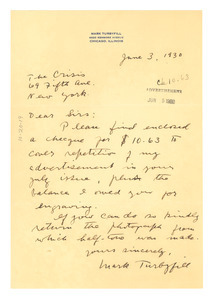 MARK TURBYFILL
CHICAGO, ILLINOIS
June 3, 1930
The Crisis
69 Fifth Ave.
New York.
Dear Sirs:
Please find enclosed
a cheque for $10.63 to
cover repetition of my
advertisement in your
July issue, plus the
balance I owed you for
engraving.
If you can do so kindly
return the photograph from
which half-tone was made.
Yours sincerely,
Mark Turbyfill